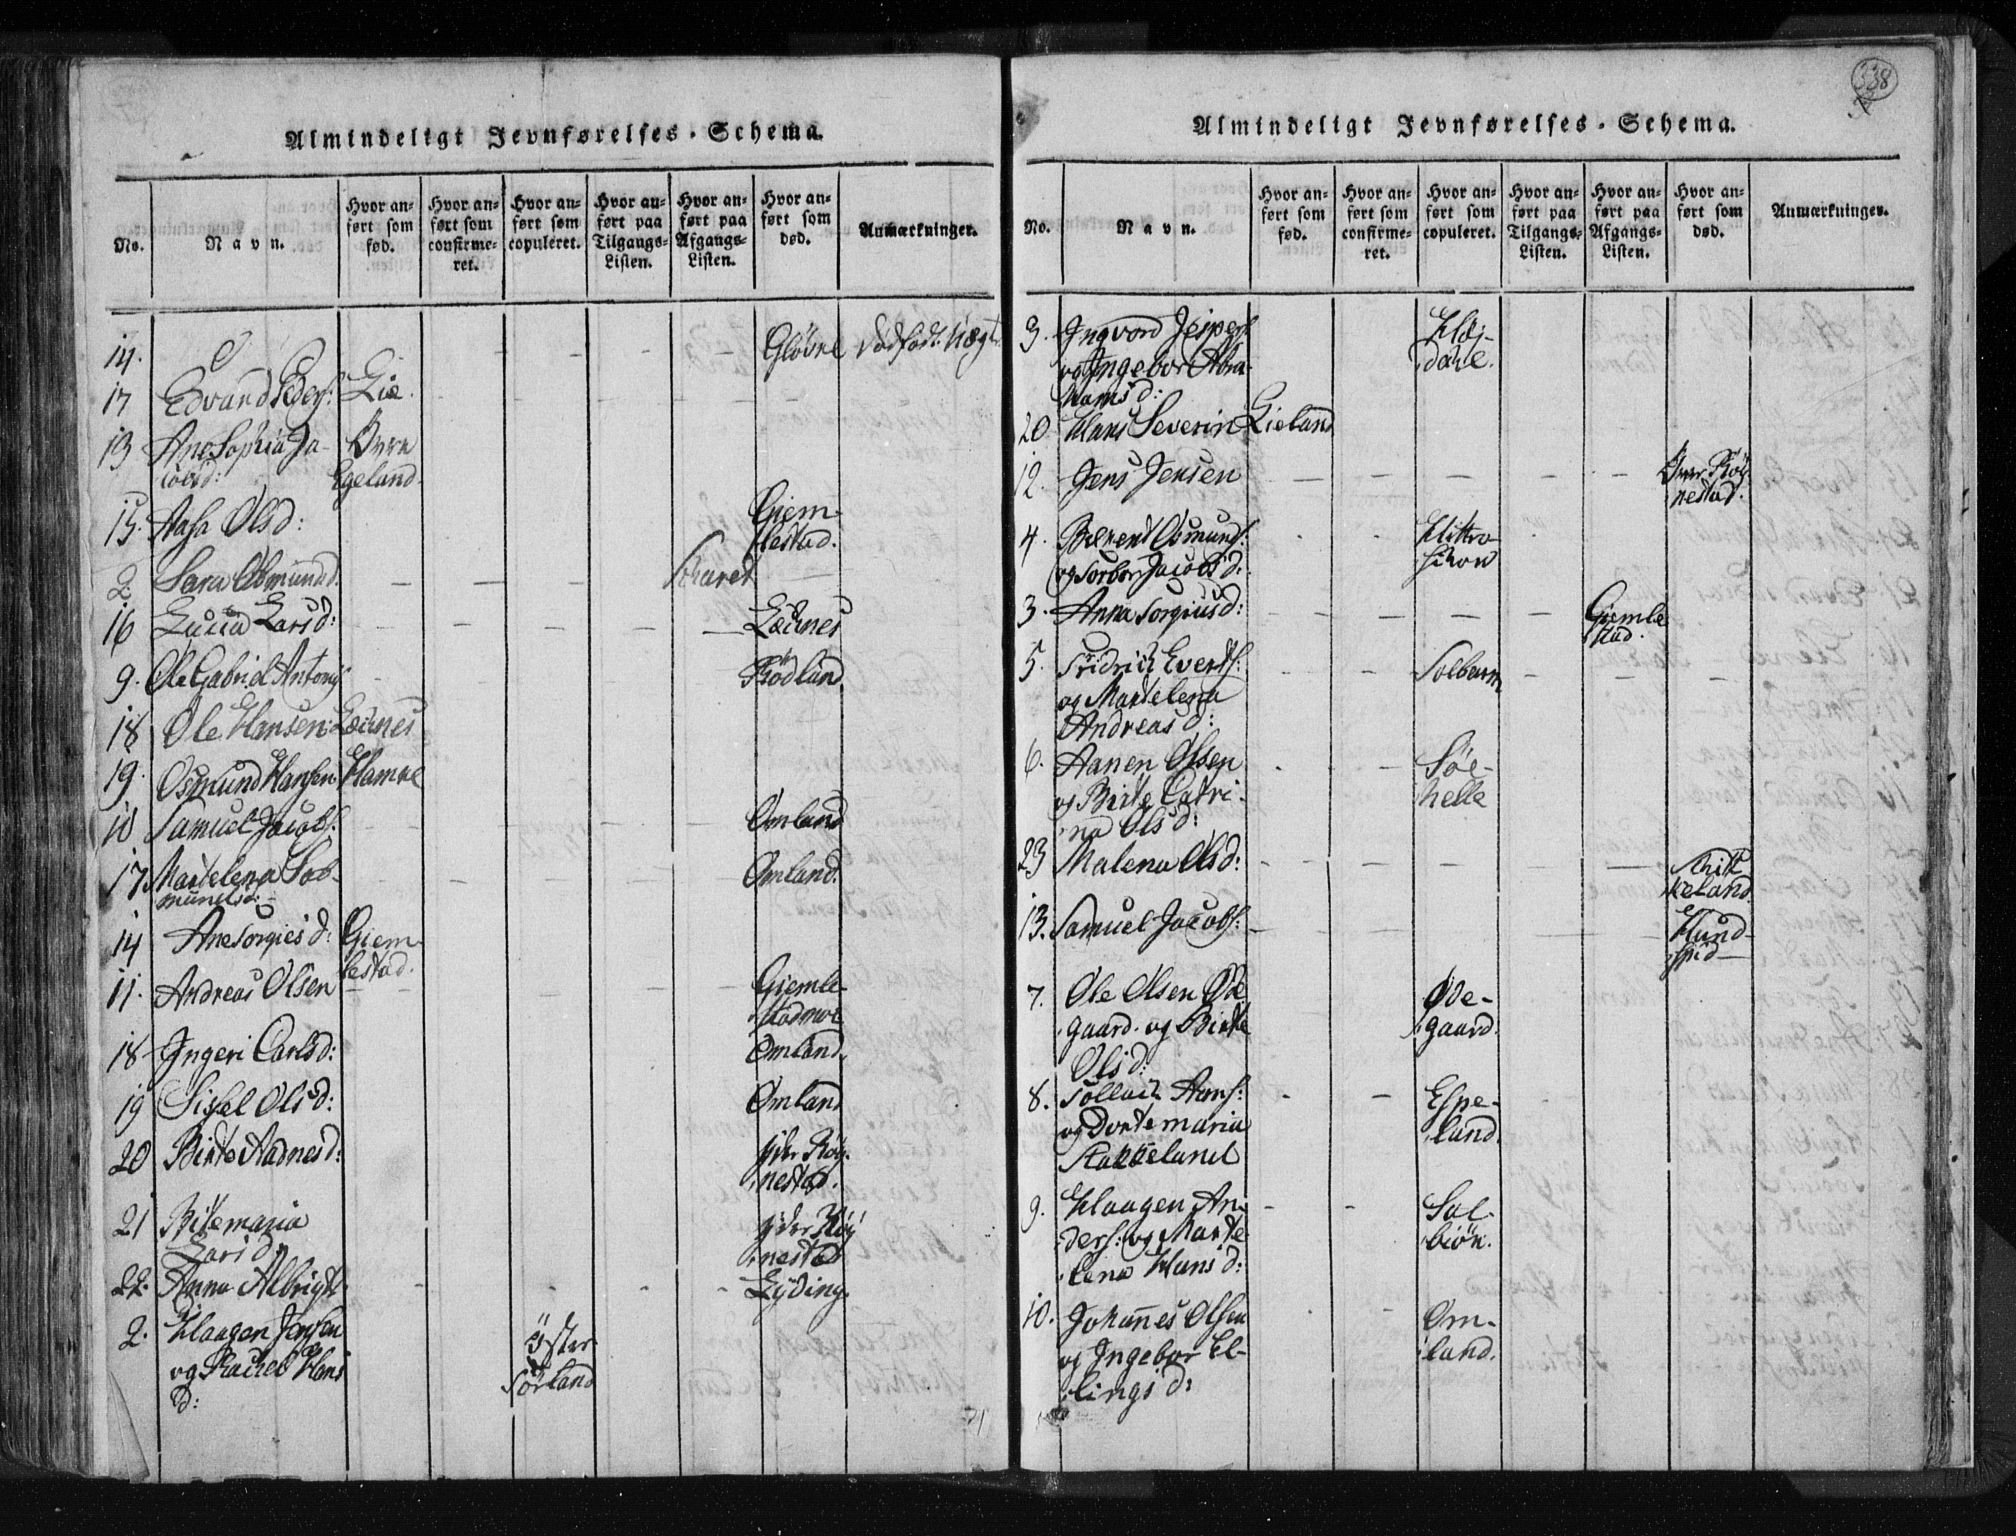 Almindeligt Jevnførelses-Schema.
No.
Navn.
Hvor anført som fød.
Hvor anført som confirmeret.
Hvor anført som copuleret.
Hvor anført paa Tilgangs-Listen.
Hvor anført paa Afgangs-Listen.
Hvor anført som død.
Anmærkninger.
14. Glöbne dödföd
17 Edvard Peders: Lie.
13 Ane Sophia Ja- Övre
cobsd: Egeland.
15. Aasa Olsd: Giem-
lestad.
2. Sara Aasmundsd.
16 Lucia Larsd: Lædnes
9. Ole Gabriel Antonis Rödland
18 Ole Hansen: Lædnes
19. Osmund Hansen Hamre
10 Samuel Jacobs: Omland
17 Martelena Tob- Omland.
14 Ane Torgiesd: Giem-
lestad.
11. Andreas Olsen Giemle-
stadmoe
18 Ingeri Carlsd: Omland
19 Sissel Olsd: Omland
20 Birte Aadnesd: yder Röy-
nestad.
21 Bitemaria yder Röy
Larsd: nestad
22. Anna Albrigts Lyding.
2. Haagen Jensen Öster-
og Rachel Hans Sörland
d:
338
Almindeligt Jevnførelses-Schema.
No.
Navn.
Hvor anført som fød.
Hvor anført som confirmeret.
Hvor anført som copuleret.
Hvor anført paa Tilgangs-Listen.
Hvor anført paa Afgangs-Listen.
Hvor anført som død.
Anmærkninger.
3. Ingvord Jespers:
og Ingebor Abra- dahl.
hamsd:
20 Hans Severin Lieland
12. Jens Jensen Över Röy
nestad.
4. Bærent Osmunds:
og Torbor Jacobsd:
3. Anna Torgiusd: Giemle
stad.
5. Fridrich Everts:
og Martelena
Andreasd:
6. Aanen Olsen Söe-
og Birte Catri- helle
na Olsd:
23 Malena Olsd:
keland
13. Samuel Jacobs: Hund-
7. Ole Olsen Öde Öde-
gaard. og Birte gaard.
Olsd:
8. Tollach Aans: Espe-
og Dortemaria land.
Stakkeland
9. Haagen An- Sol-
ders: og Marte biör.
lena Hansd:
10. Johannes Olsen Om-
og Ingebor El- land.
lingsd: